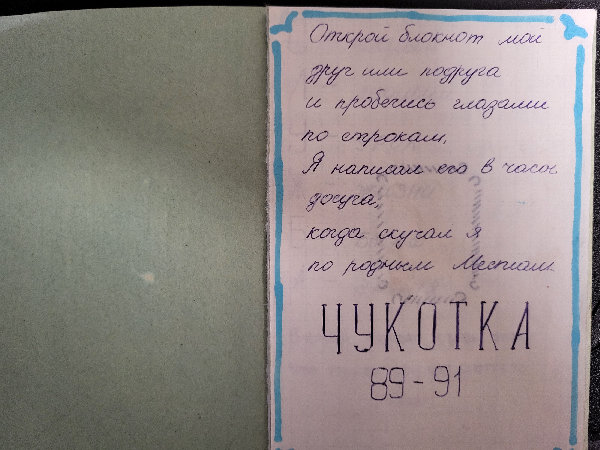 Открой блокнот мой
друг или подруга
и пробегись глазами
по строкам,
Я написал его в часы
досуга,
когда скучал я
по родным Местам.
ЧУКОТКА
89-91